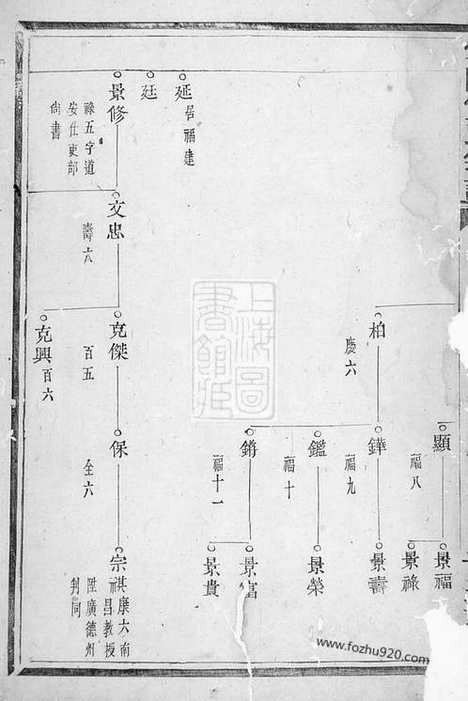 顯
福八
景福
景祿
柏
慶六
鏵
福九
景壽
鑑
福十
景榮
鏘
福十一
景富
景貴
延
居福建
廷
景修
祿五字道
安仕吏部
尚書
文忠
壽六
克傑
百五
保
全六
宗祺
康六南
昌教授
陞廣德州
判同
克興
百六
上海圖
書館藏
www.fozhu920.com